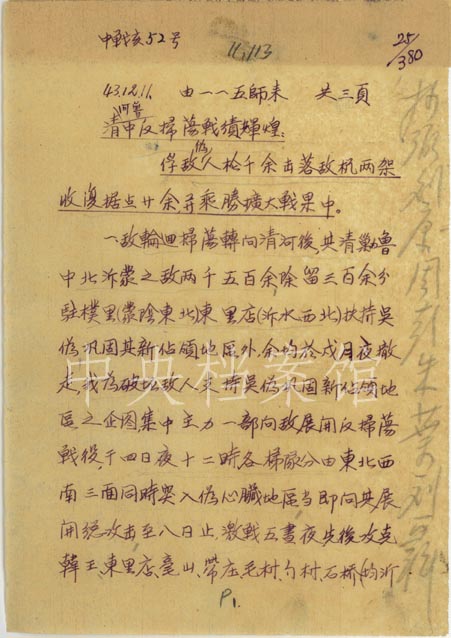 中戰亥52号
11,113
25/380
43.12.11. 由一一五師来 共三頁
清河魯中反掃蕩戰績輝煌:
俘敌偽人枪千余击落敌机两架
收復据点廿余,并乘勝擴大戰果中。
一敌輪迴掃蕩轉向清河後,其清剿魯
中北沂蒙之敌两千五百余除留三百余分
駐樸里(蒙陰東北)東里店(沂水西北)扶持吴
偽巩固其新佔領地區外,余均於戌月夜撤
走,我為破坏敌人支持吴偽巩固新佔領地
區之企图集中主力一部向敌展開反掃蕩
戰役,于四日夜十二時各掃隊分由東北西
南三面同時突入偽心臟地區,当即向其展
開總攻击至八日止,激戰五晝夜先後攻克
韓王、東里店、 山、 庄、毛村、 村、石桥(均沂
P1.
中央档案馆